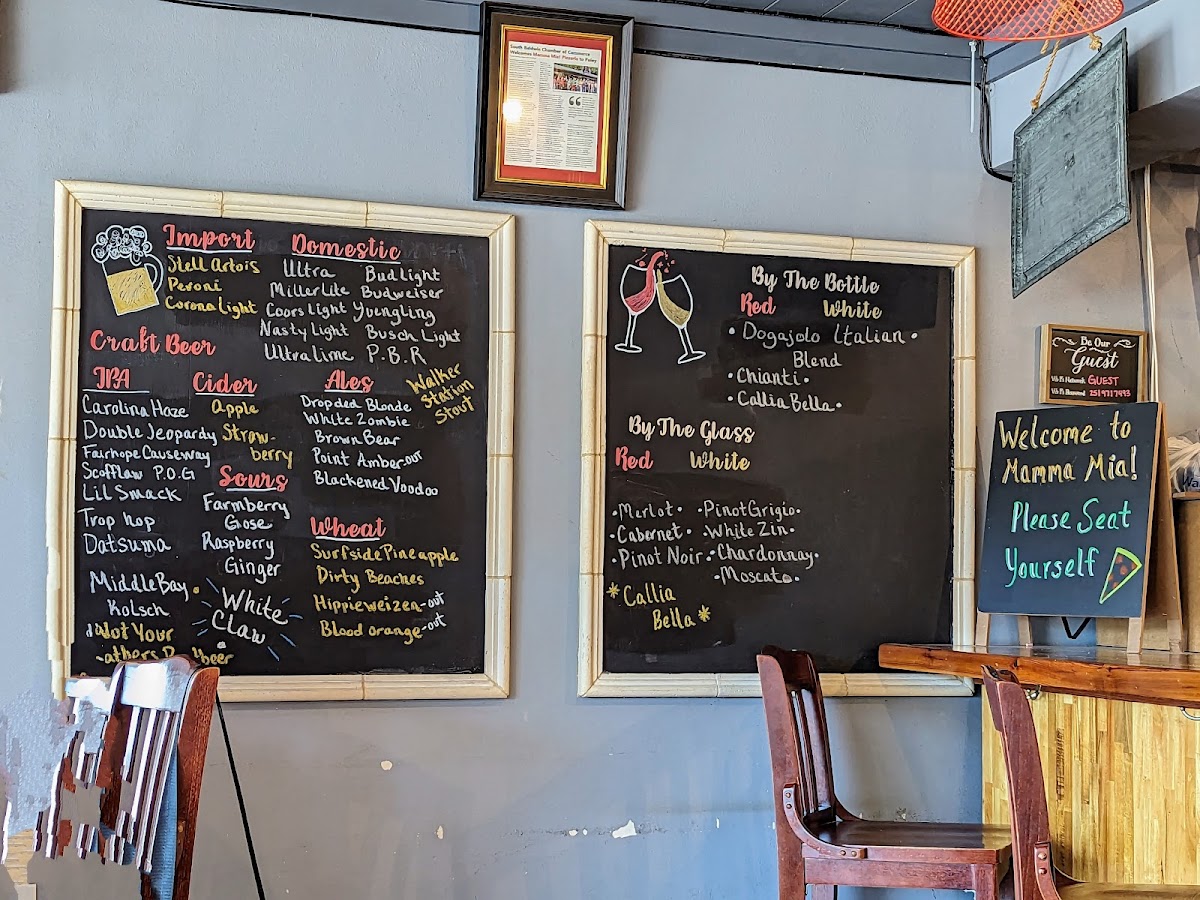 South Baldwin Chamber of Commerce
Welcomes Mamma Mia! Pizzeria to Foley
Import
Stell Artois
Peroni
Corona Light
Domestic
Ultra Bud Light
Miller Lite Budweiser
Coors Light Yuengling
Nasty Light Busch Light
Ultra Lime P.B.R
Craft Beer
IPA
Carolina Haze
Double Jeopardy
Fairhope Causeway
Scofflaw P.O.G
Lil Smack
Trop hop
Datsuma
Middle Bay
Kolsch
Not Your
Cider
apple
Straw-
berry
Sours
Farmberry
Gose
Raspberry
Ginger
White
Claw
Ales
Dropded Blonde
White Zombie
Brown Bear
Point Amber-our
Blackened Voodoo
Walker
Station
Stout
Wheat
Surfside Pineapple
Dirty Beaches
Hippieweizen-out
Blood orange-out
By The Bottle
Red White
• Dogajolo Italian •
Blend
• Chianti •
• Callia Bella •
By The Glass
Red White
• Merlot •
• Cabernet •
• Pinot Noir •
* Callia
Bella *
• Pinot Grigio •
• White Zin •
• Chardonnay •
• Moscato •
Be Our
Guest
Wi-Fi Network GUEST
Wi-Fi Password 2519717493
Welcome to
Mamma Mia!
Please Seat
Yourself